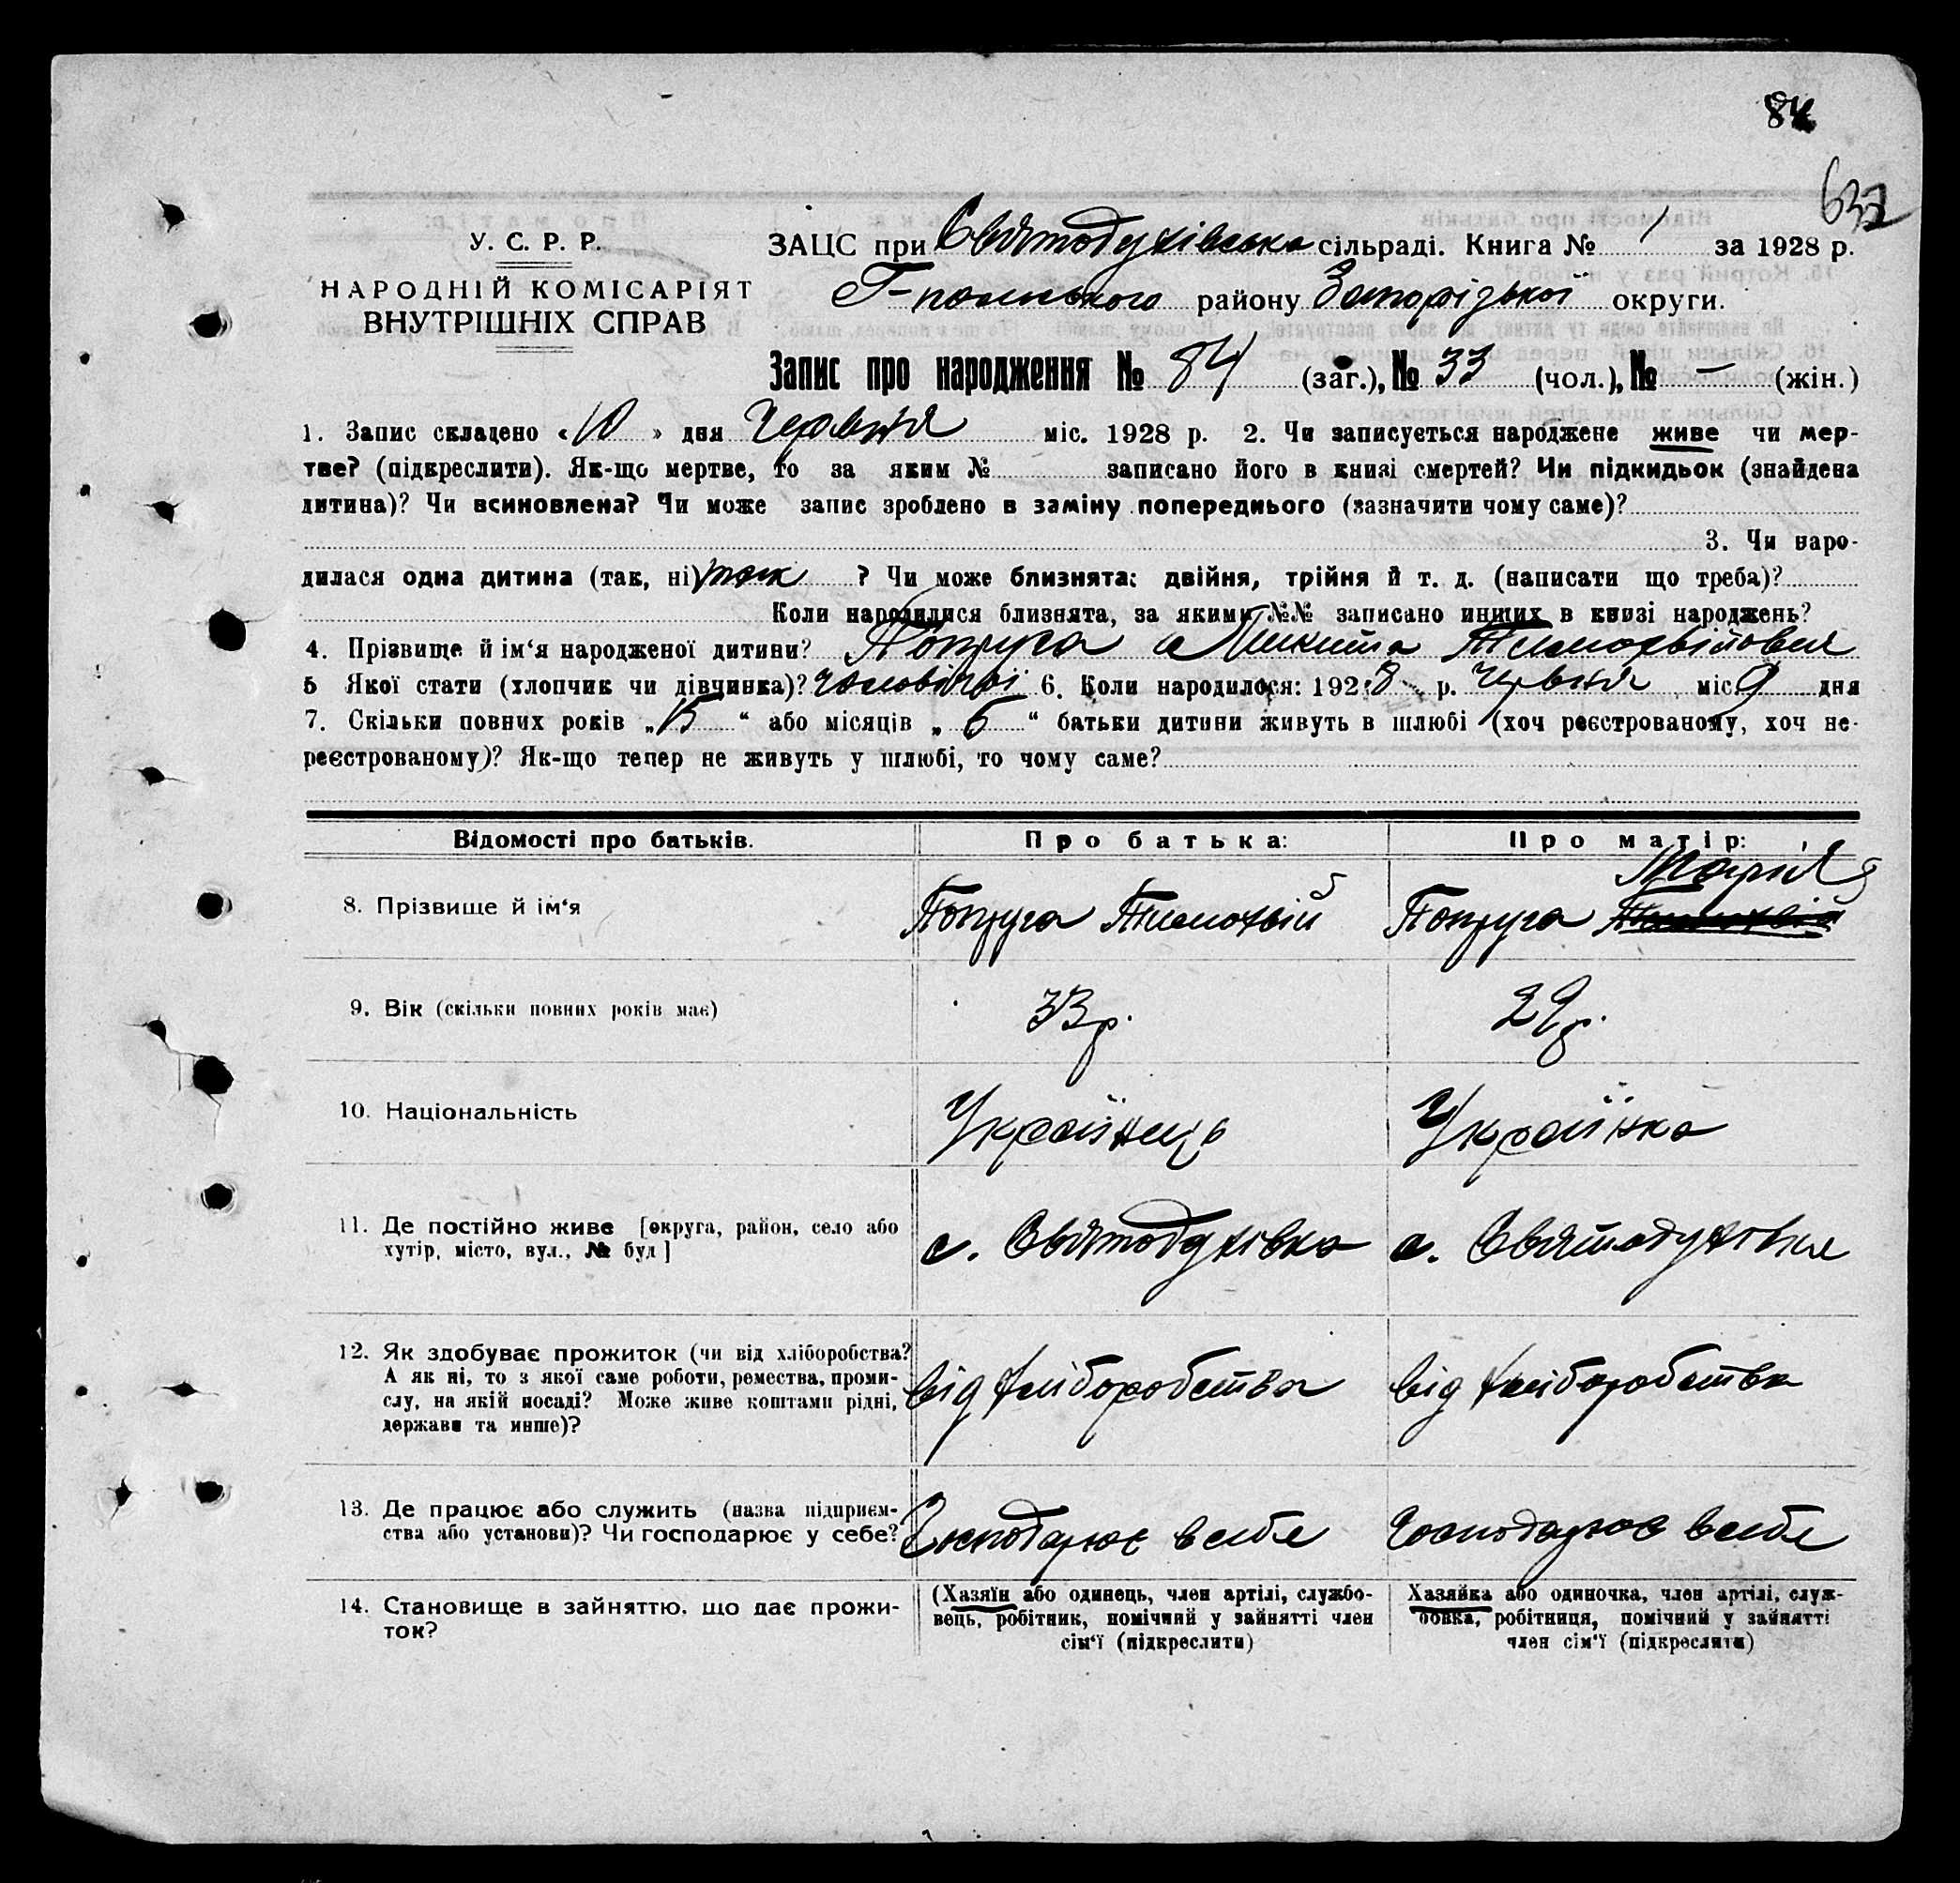 84
632
У. С. Р. Р.
НАРОДНІЙ КОМІСАРІЯТ
ВНУТРІШНІХ СПРАВ
ЗАЦС при Святодухівська сільраді. Книга № 1 за 1928 р.
Г-польського району Запорізької округи.
Запис про народження № 84 (заг.), № 33 (чол.), № — (жін.)
1. Запис складено «10» дня Червня міс. 1928 р. 2. Чи записується народжене живе чи мер-
тве? (підкреслити). Як-що мертве, то за яким № записано його в книзі смертей? Чи підкидьок (знайдена
дитина)? Чи всиновлена? Чи може запис зроблено в заміну попереднього (зазначити чому саме)?
3. Чи наро-
дилася одна дитина (так, ні) так ? Чи може близнята: двійня, трійня й т. д. (написати що треба)?
Коли народилися близнята, за якими №№ записано инших в книзі народжень?
4. Прізвище й ім‘я народженої дитини? Попруга Микита Тимохвійович
5 Якої стати (хлопчик чи дівчинка)? чоловічої 6. Коли народилося: 1928 р. Червня міс. 9 дня
7. Скільки повних років „15“ або місяців „6“ батьки дитини живуть в шлюбі (хоч реєстрованому, хоч не-
реєстрованому)? Як-що тепер не живуть у шлюбі, то чому саме?
Відомості про батьків. Про батька: Про матір:
Марія
8. Прізвище й ім‘я Попруга Тимохвій Попруга Тимохвій
9. Вік (скільки повних років має) 33 р. 29 р.
10. Національність Українець Українка
11. Де постійно живе [округа, район, село або
хутір, місто, вул., № буд] с. Святодухівка с. Святодухівка
12. Як здобуває прожиток (чи від хліборобства?
А як ні, то з якої саме роботи, ремества, проми-
слу, на якій посаді? Може живе коштами рідні,
держави та инше)? від хліборобства від хліборобства
13. Де працює або служить (назва підприєм-
ства або установи)? Чи господарює у себе? Господарює в себе Господарює в себе
14. Становище в зайняттю, що дає прожи-
ток?
(Хазяїн або одинець, член артілі, службо-
вець, робітник, помічний у зайнятті член
сім‘ї (підкреслити)
Хазяйка або одиночка, член артілі, служ-
бовка, робітниця, помічний у зайнятті
член сім‘ї (підкреслити)